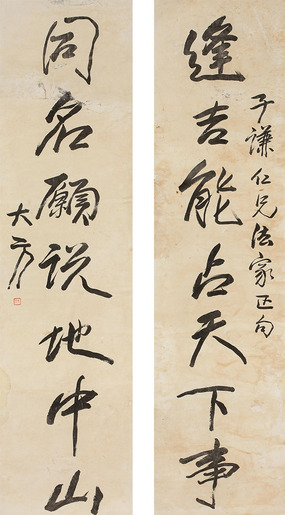 子谦仁兄法家正句
逢吉能占天下事
同名愿说地中山
大方